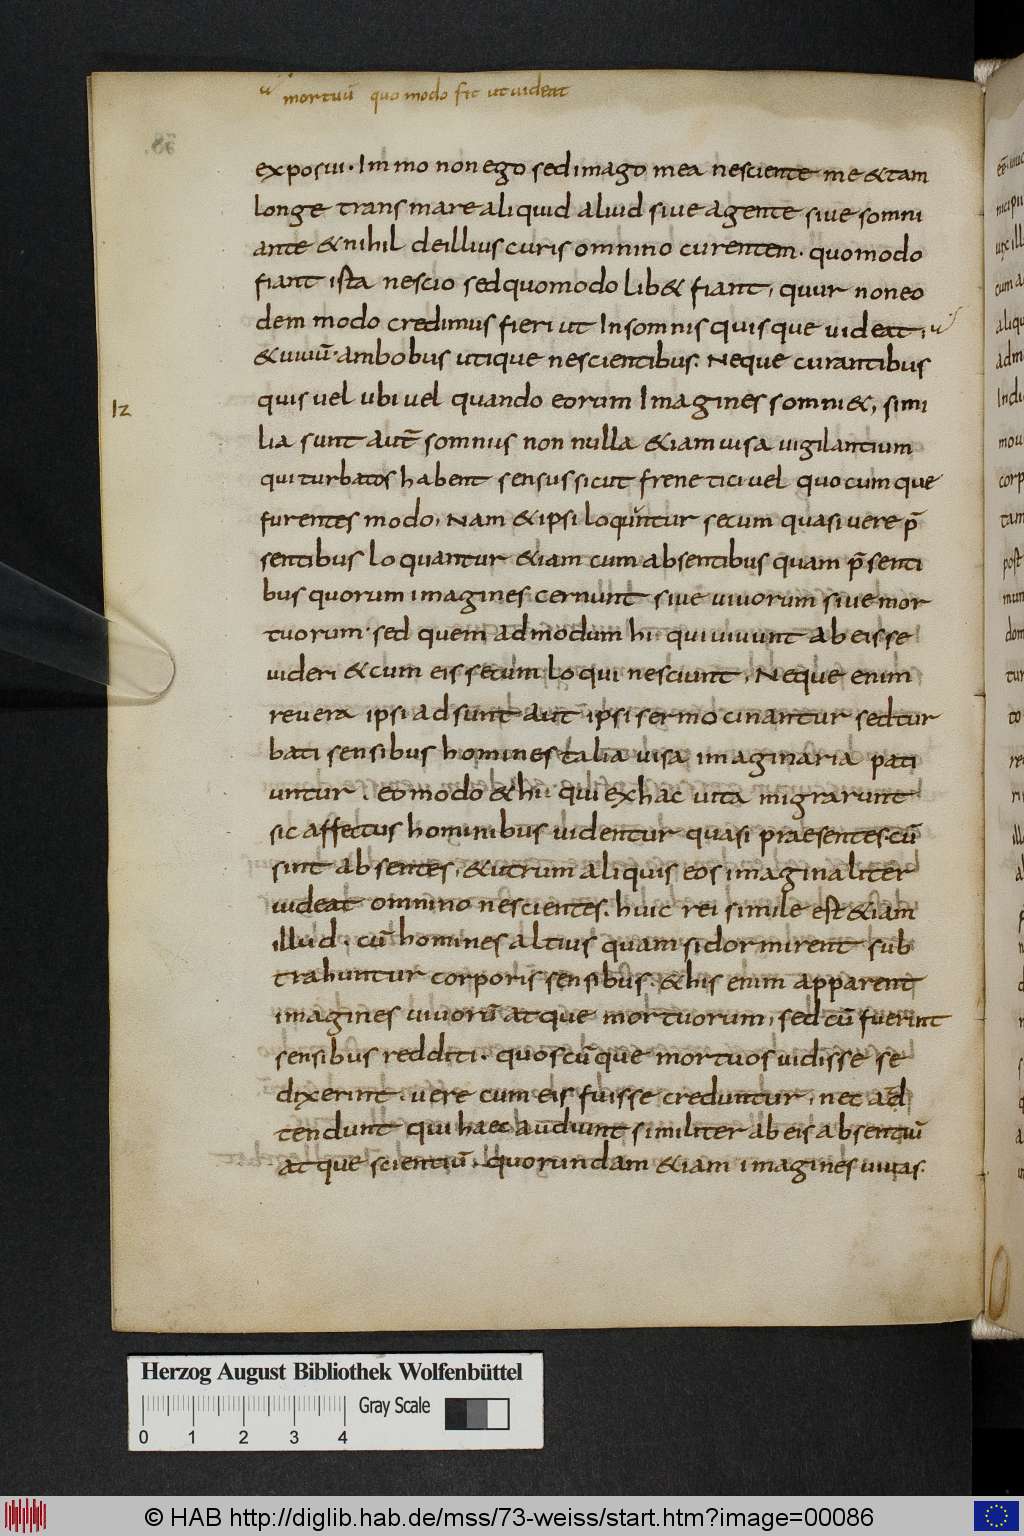 mortuū quo modo fit ut videat
exposui. Immo non ego sed imago mea nesciente me & tam
longe trans mare aliquid aliud sive agente sive somni
ante & nihil de illius curis omnino curentem. quomodo
fiant ista nescio sed quomodolib& fiant, quur non eo
dem modo credimus fieri ut In somnis quisque videat,
& vivū. ambobus utique nescientibus. Neque curantibus
quis vel ubi vel quando eorum Imagines somni&, simi
lia sunt aut̄ somnus non nulla &iam visa vigilantium
qui turbatos habent sensus sicut frenetici vel quocumque
furentes modo, Nam & ipsi loquuntur secum quasi vere p̄
sentibus loquantur &iam cum absentibus quam p̄senti
bus quorum imagines cernunt sive vivorum sive mor
tuorum. sed quem admodum hi qui vivunt ab eis se
videri & cum eis secum loqui nesciunt, Neque enim
revera ipsi adsunt aut ipsi sermocinantur sed tur
bati sensibus homines talia visa imaginaria pati
untur. eo modo & hii qui ex hac vita migrarunt
sic affectus hominibus videntur quasi praesentes. cū
sint absentes, & utrum aliquis eos imaginaliter
videat omnino nescientes. huic rei simile est &iam
illud. cū homines altius quam si dormirent sub
trahuntur corporis sensibus. & his enim apparent
imagines vivorū atque mortuorum, sed cū fuerint
sensibus redditi. quoscūque mortuos vidisse se
dixerint, vere cum eis fuisse creduntur, nec ad
tendunt qui haec audiunt similiter ab eis absentiū
atque scientiū, quorundam &iam imagines vivas.
Herzog August Bibliothek Wolfenbüttel
Gray Scale
0 1 2 3 4
© HAB http://diglib.hab.de/mss/73-weiss/start.htm?image=00086